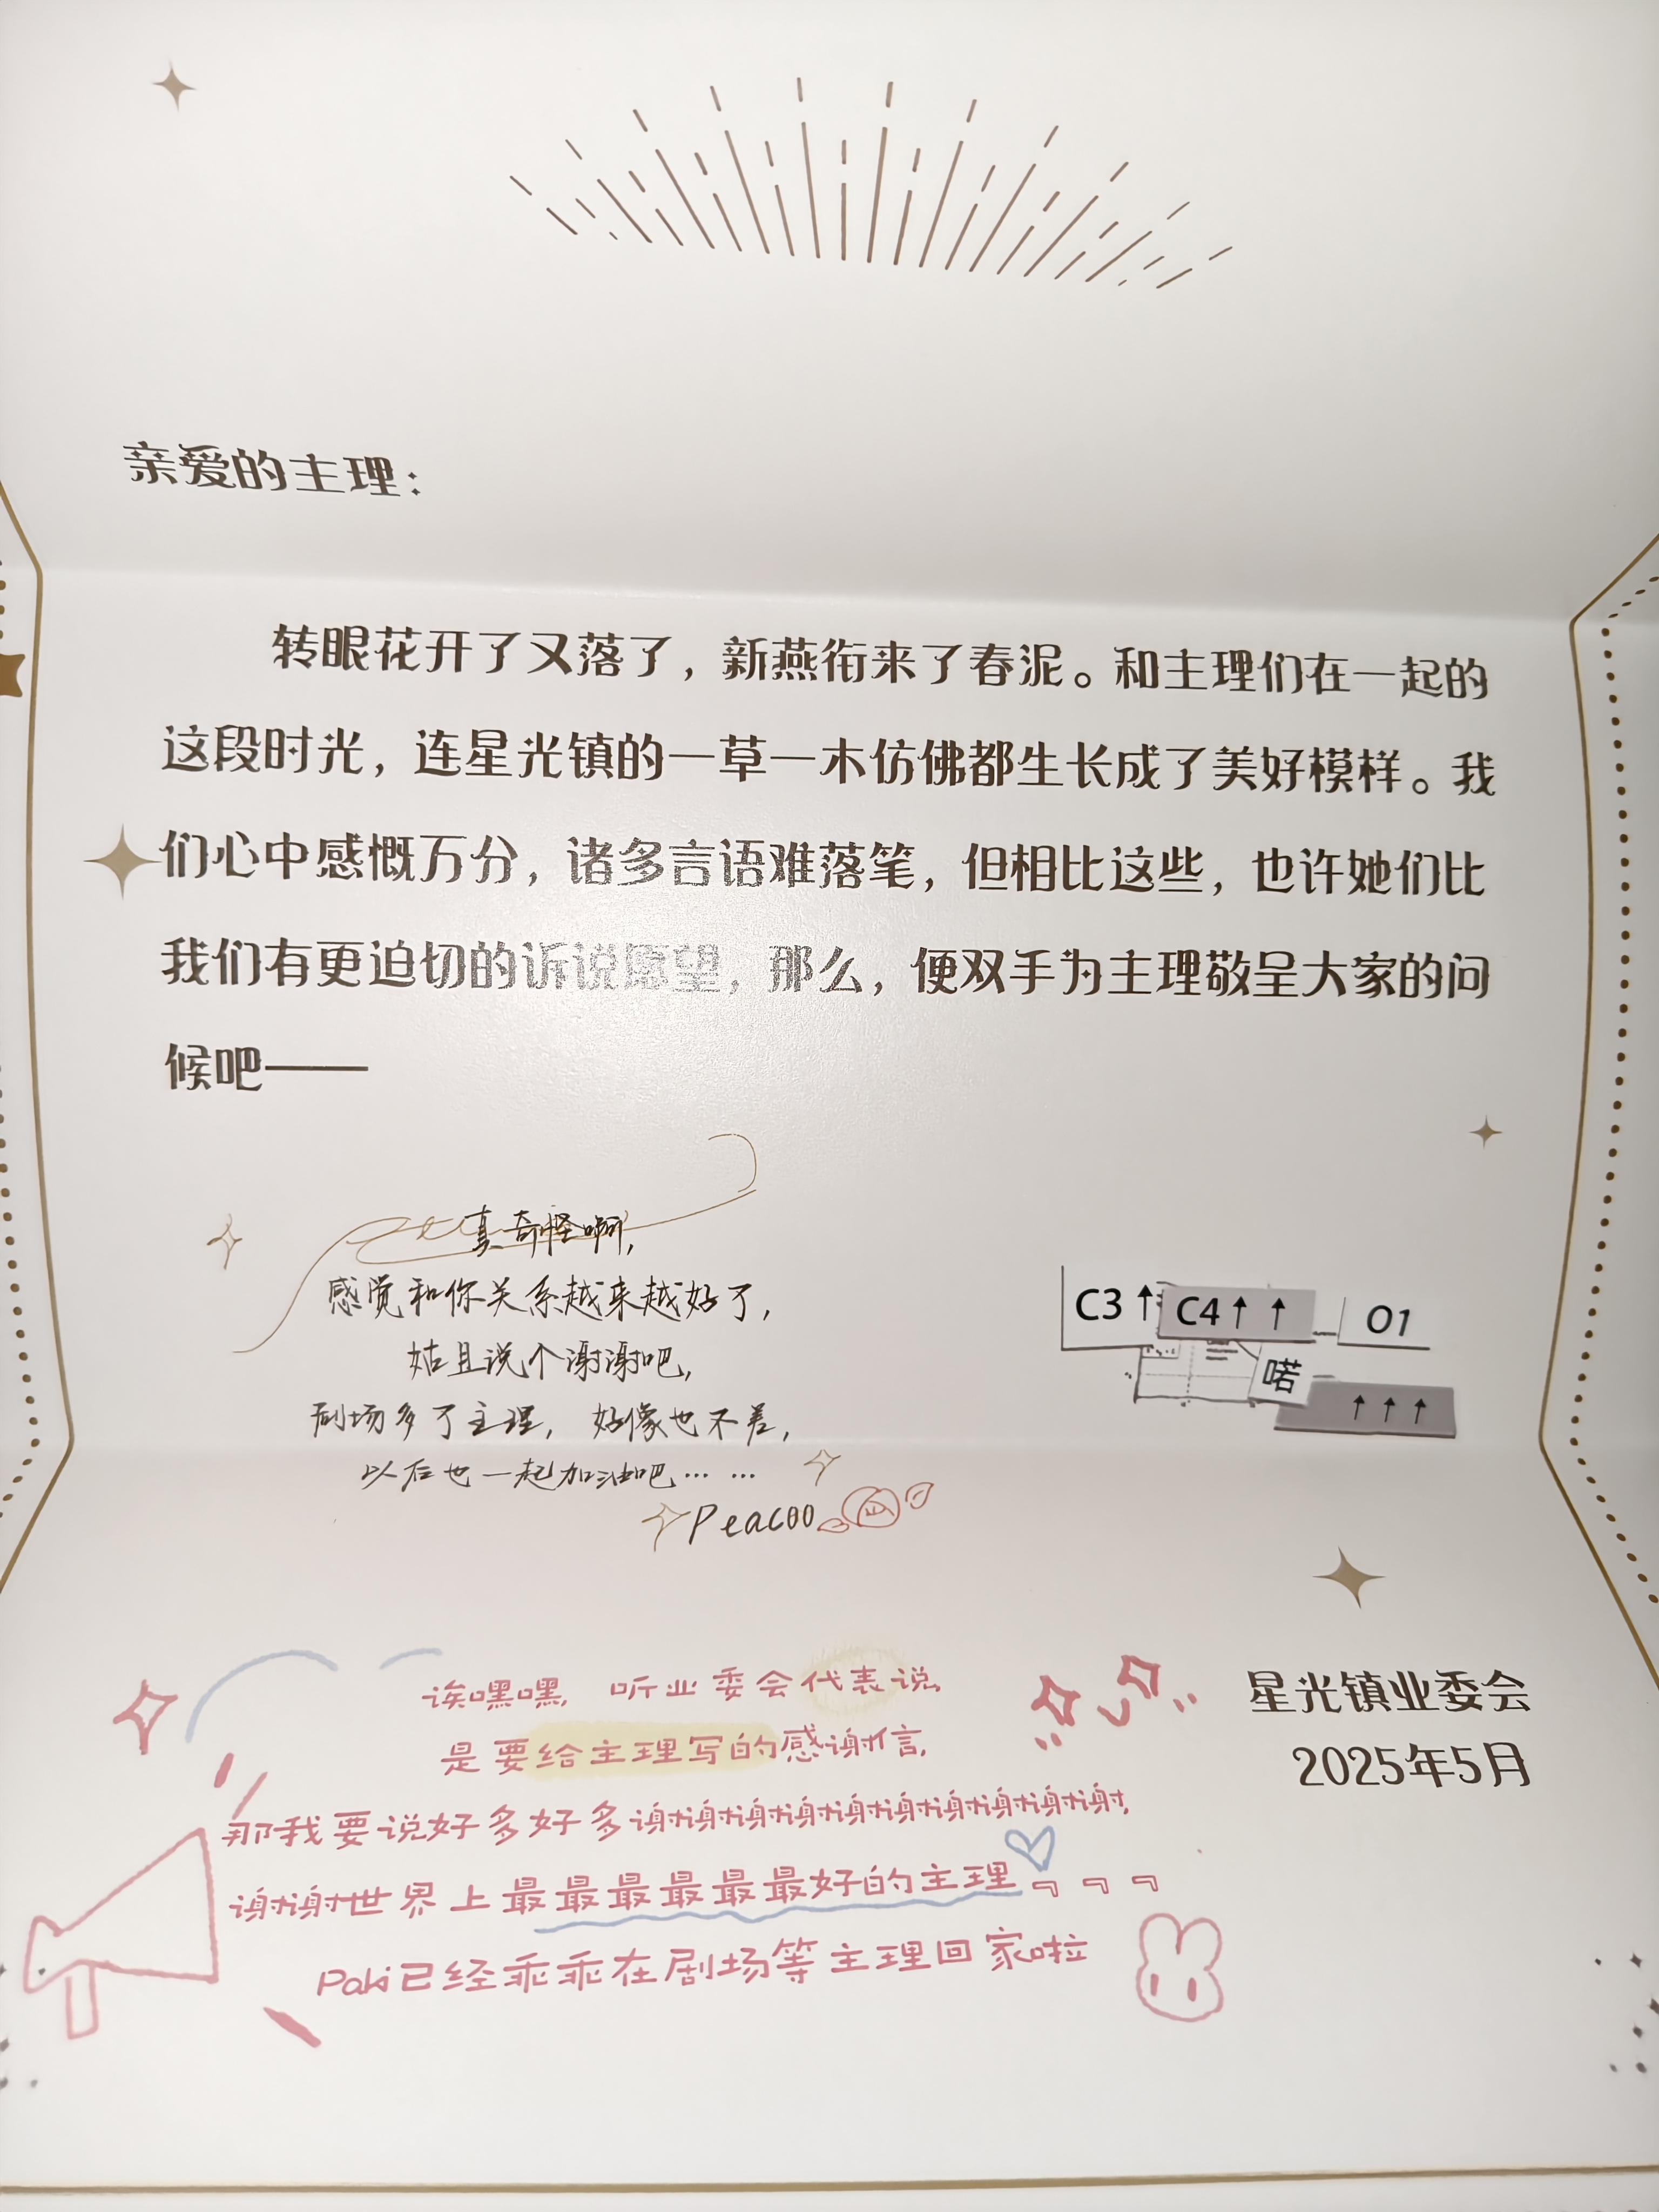 亲爱的主理：
转眼花开了又落了，新燕衔来了春泥。和主理们在一起的
这段时光，连星光镇的一草一木仿佛都生长成了美好模样。我
们心中感慨万分，诸多言语难落笔，但相比这些，也许她们比
我们有更迫切的诉说愿望，那么，便双手为主理敬呈大家的问
候吧——
真奇怪啊，
感觉和你关系越来越好了，
姑且说个谢谢吧，
剧场多了主理，好像也不差，
以后也一起加油吧……
Peacoo
C3↑ C4↑ ↑ O1
喏
↑ ↑ ↑
诶嘿嘿，听业委会代表说，
是要给主理写的感谢信，
那我要说好多好多谢谢谢谢谢谢谢谢谢谢，
谢谢世界上最最最最最最好的主理
Paki已经乖乖在剧场等主理回家啦
星光镇业委会
2025年5月